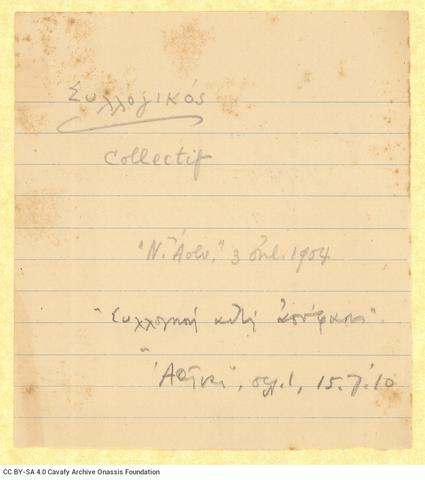 Συλλογικός
Collectif
"Ν. Άστυ," 3 Οκτ. 1904
"Συλλογική αυτή απόφασι".
"
"Αθήναι", σελ. 1, 15.7.10
CC BY-SA 4.0 Cavafy Archive Onassis Foundation